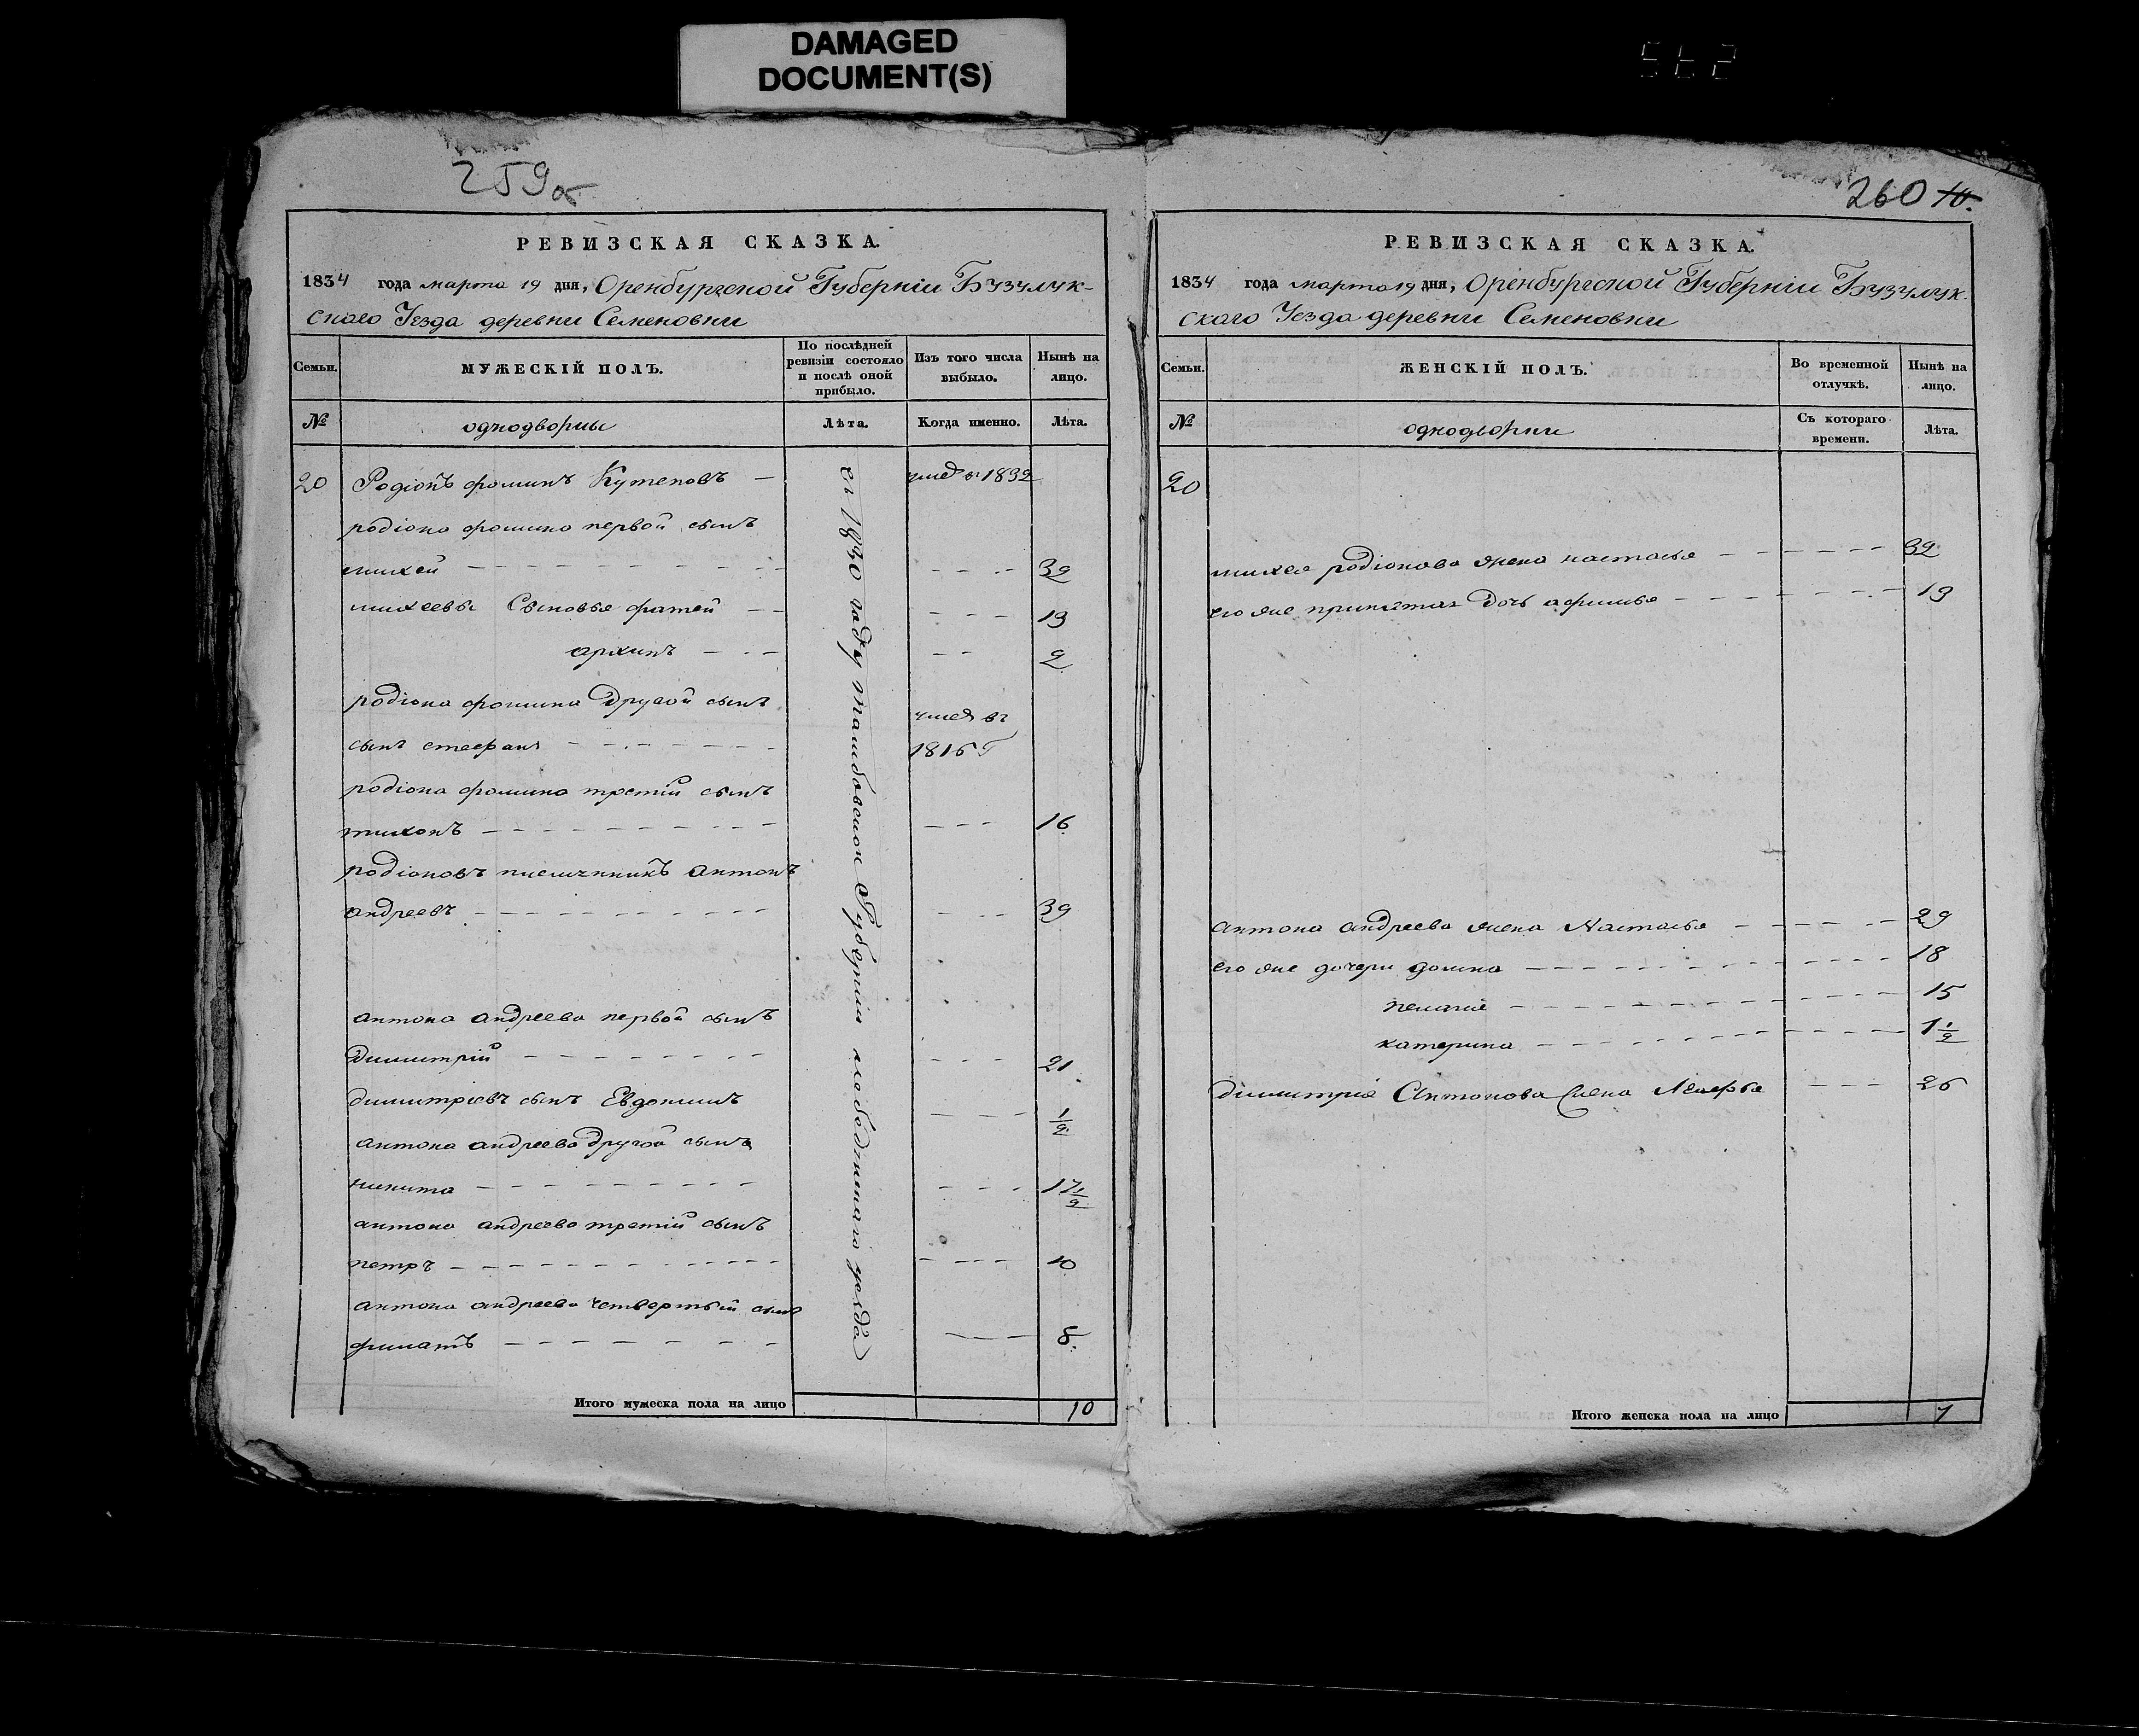 DAMAGED
DOCUMENT(S)
259об
РЕВИЗСКАЯ СКАЗКА.
1834 года марта 19 дня, Оренбургской Губерніи Бузулук-
скаго Уезда деревни Семеновки
Семьи.
МУЖЕСКІЙ ПОЛЪ.
По послѣдней ревизіи состояло и послѣ оной прибыло.
Изъ того числа выбыло.
Нынѣ на лицо.
№
однодворцы
Лѣта.
Когда именно.
Лѣта.
20 Родіонъ фоминъ Кутеповъ — 1832
родіона фомина первой сынъ
михей 32
михеевы Сыновья фатей 13
архипъ 2
родіона фомина Другой сынъ
сынъ стефанъ 1816 Г
родіона фомина третій сынъ
тихонъ 16
родіоновъ племянникъ антонъ
андреевъ 39
антона андреева первой сынъ
димитрій 21
димитріевъ сынъ Евдокимъ 1/2
антона андреева другой сынъ
никита 17 1/2
антона андреева третій сынъ
петръ 10
антона андреева четвертый сынъ
филатъ 8.
1830 году тамбовской Губерніи лебедянаго уезда
Итого мужеска пола на лицо 10
260
РЕВИЗСКАЯ СКАЗКА.
1834 года марта 19 дня, Оренбургской Губерніи Бузулук-
скаго Уезда деревни Семеновки
Семьи.
ЖЕНСКІЙ ПОЛЪ.
Во временной отлучкѣ.
Нынѣ на лицо.
№
однодворки
Съ котораго времени.
Лѣта.
20
михея родіонова жена настасья 32
его же принятая Дочь афимья 19
антона андреева жена Настасья 29
его же дочери домна 18
пелагия 15
катерина 1 1/2
димитрия Антонова жена 26
Итого женска пола на лицо 7